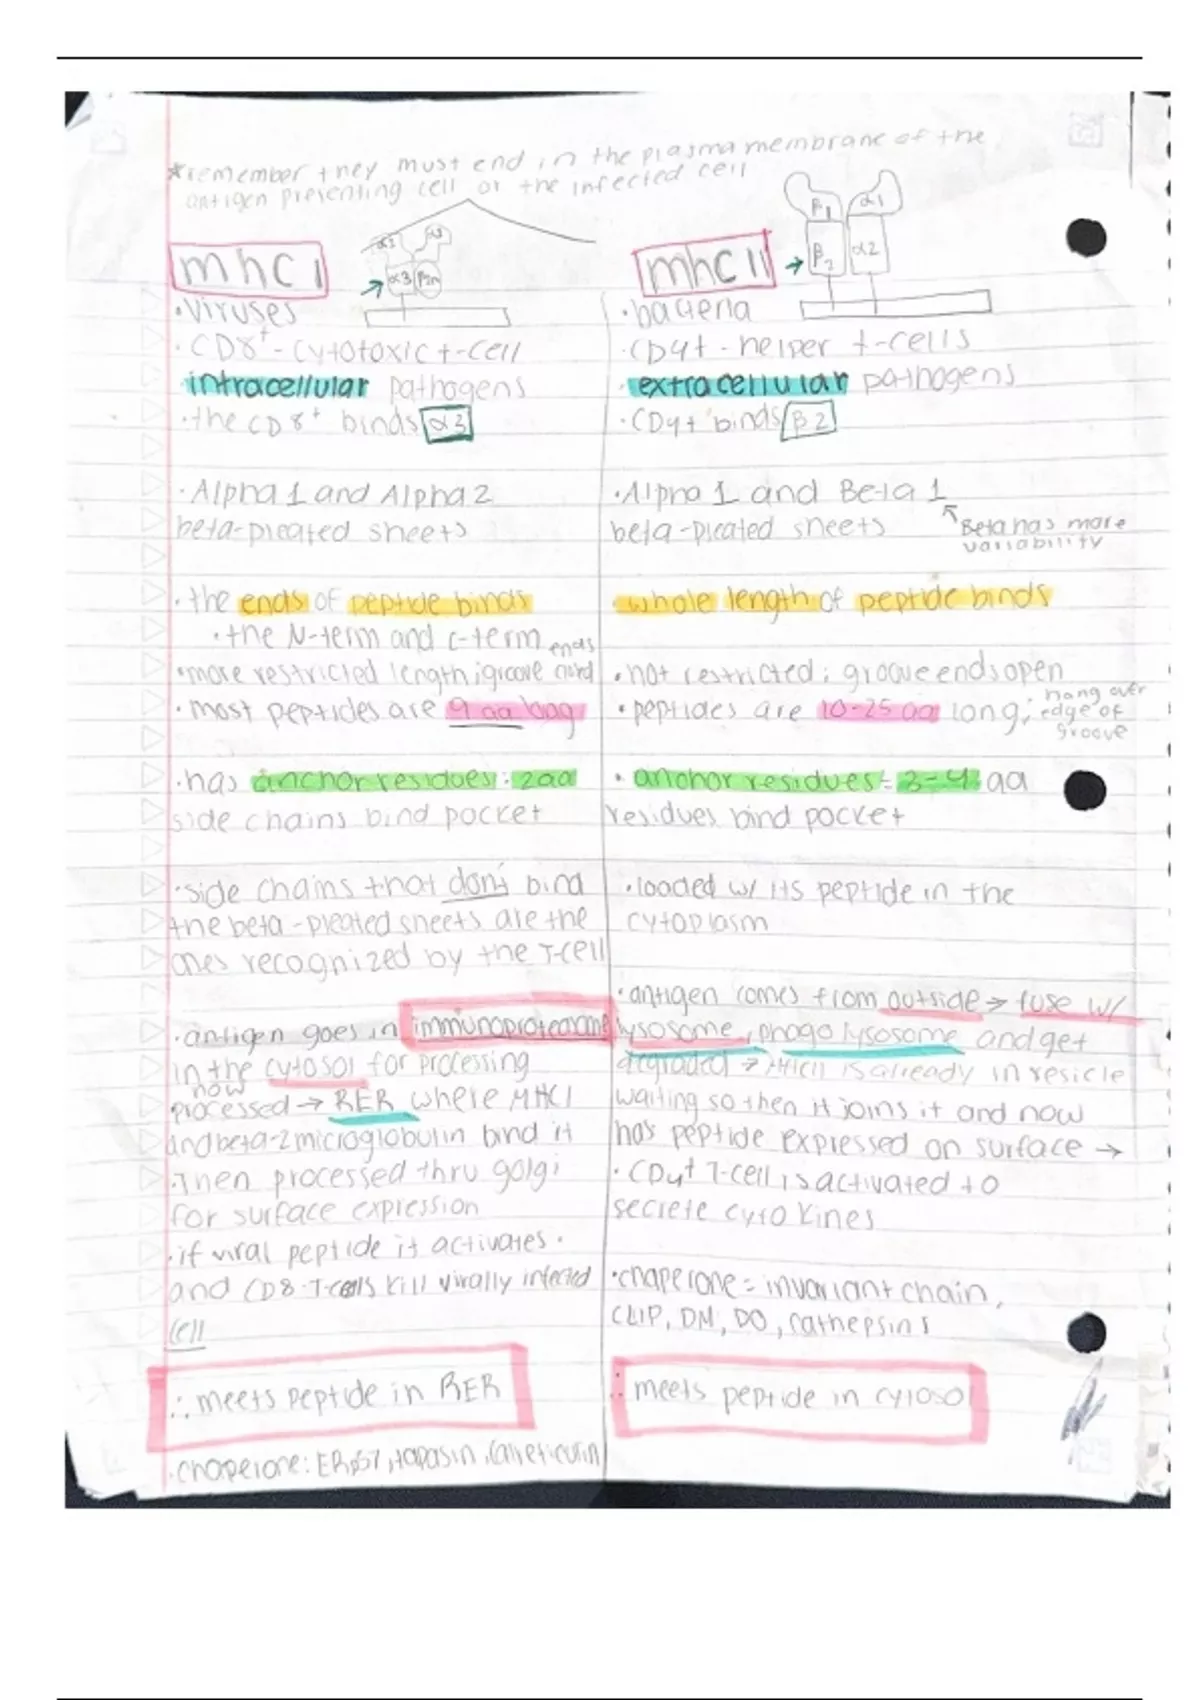 *remember they must end in the plasma membrane of the
antigen presenting cell or the infected cell
mhc I
α2
α3
β2m
• Viruses
• CD8+ - cytotoxic t-cell
• intracellular pathogens
• the CD8+ binds α3
• Alpha 1 and Alpha 2
beta-pleated sheets
• the ends of peptide binds
• the N-term and c-term ends
• more restricted length; groove
• most peptides are 9 aa long
• has anchor residues: 2aa
side chains bind pocket
• side chains that don't bind
the beta-pleated sheets are the
ones recognized by the T-cell
• antigen goes in immunoproteasome
in the cytosol for processing
now
processed → RER where MHCI
and beta-2 microglobulin bind it
• Then processed thru golgi
for surface expression
• if viral peptide it activates •
and CD8 T-cells kill virally infected
cell
∴ meets peptide in RER
• chaperone: ERp57, tapasin, calreticulin
mhc II
β1
α1
β2
α2
• bacteria
• CD4+ - helper t-cells
• extracellular pathogens
• CD4+ binds β2
• Alpha 1 and Beta 1
beta-pleated sheets
Beta has more
variability
• whole length of peptide binds
• not restricted; groove ends open
• peptides are 10-25 aa long;
hang over
edge of
groove
• anchor residues = 3-4 aa
residues bind pocket
• loaded w/ its peptide in the
cytoplasm
• antigen comes from outside → fuse w/
lysosome, phagolysosome and get
degraded → MHCII is already in vesicle
waiting so then it joins it and now
has peptide expressed on surface →
• CD4+ T-cell is activated to
secrete cytokines
• chaperone = invariant chain,
CLIP, DM, DO, cathepsins
∴ meets peptide in cytosol